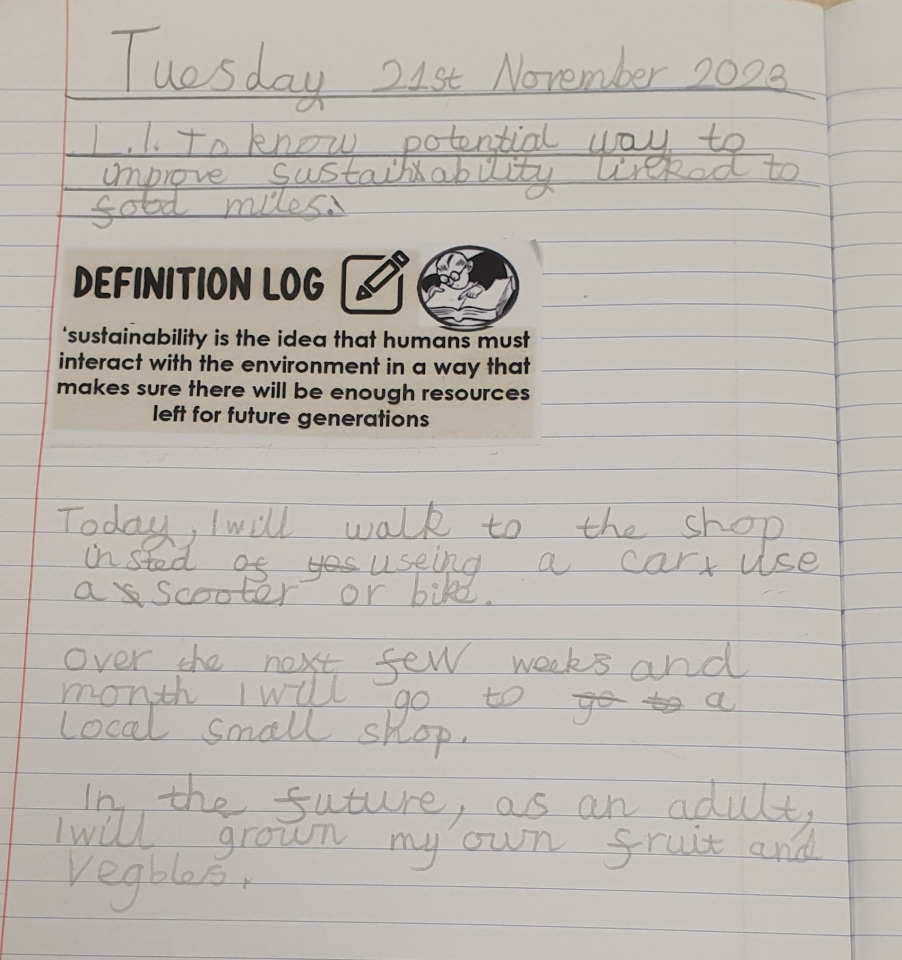 Tuesday 21st November 2023
L.I. To know potential way to
improve sustainability linked to
food miles.
DEFINITION LOG
‘sustainability is the idea that humans must
interact with the environment in a way that
makes sure there will be enough resources
left for future generations
Today, I will walk to the shop
insted of useing a car, use
a scooter or bike.
Over the next few weeks and
month I will go to a
local small shop.
In the future, as an adult,
I will grown my own fruit and
Vegbles.